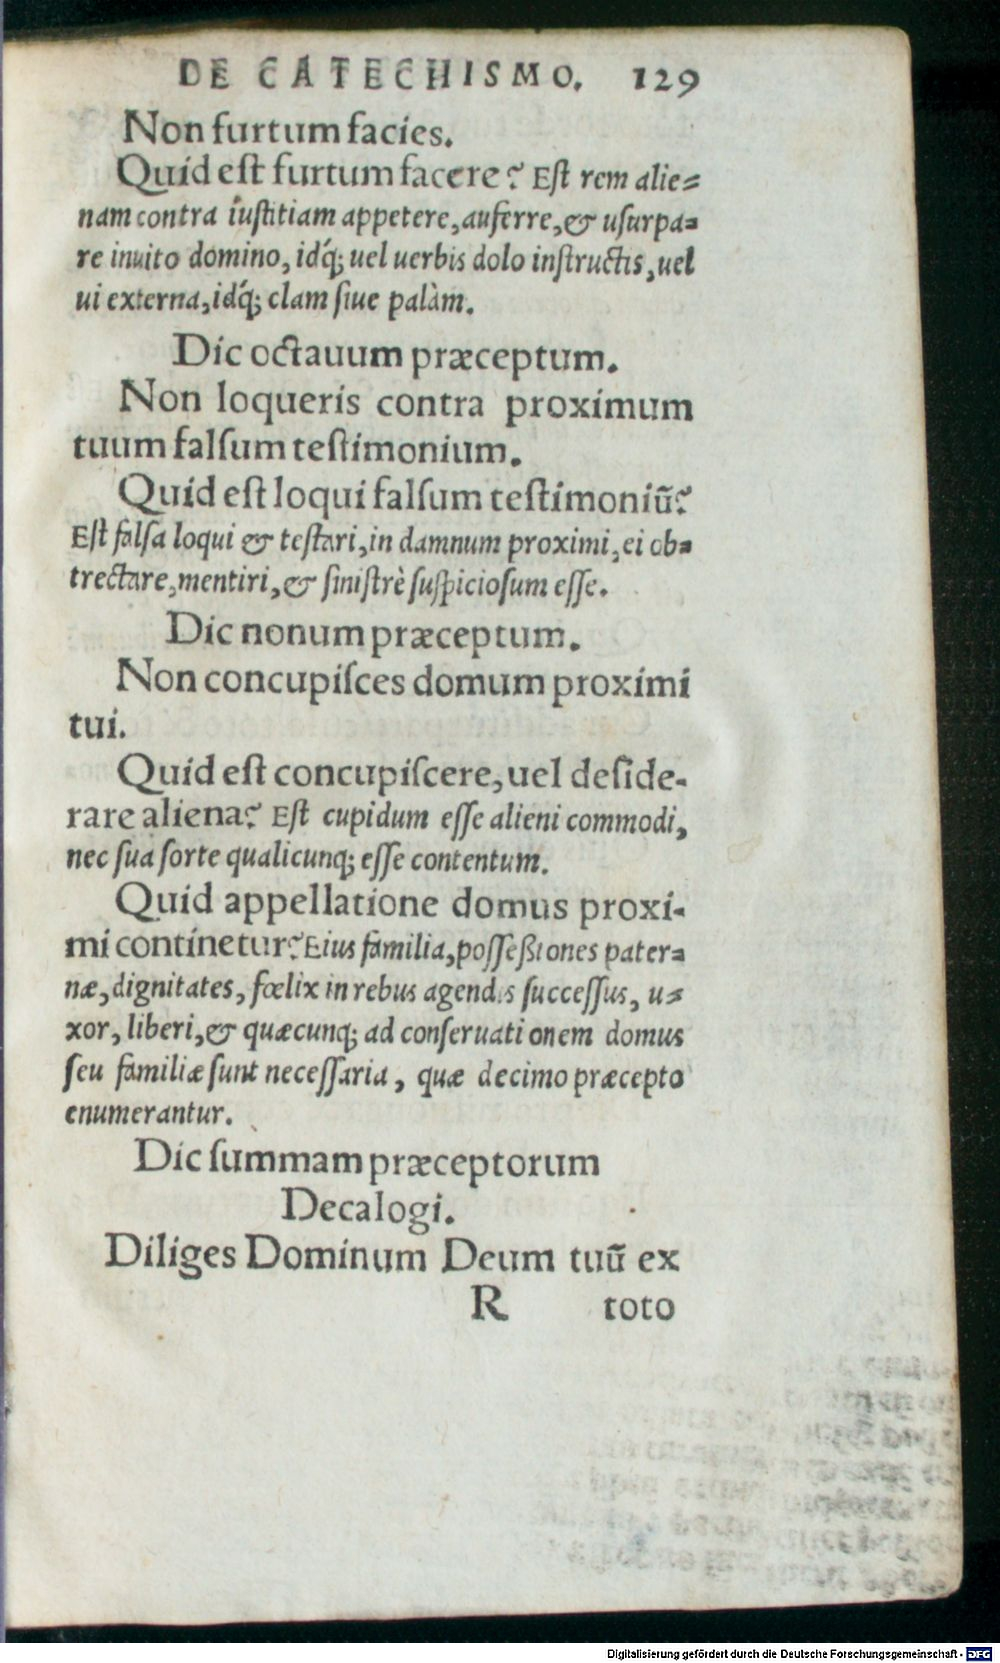 DE CATECHISMO. 129
Non furtum facies.
Quid eſt furtum facere? Eſt rem alie⸗
nam contra iuſtitiam appetere, auferre, & uſurpa⸗
re inuito domino, idq́; uel uerbis dolo inſtructis, uel
ui externa, idq́; clam ſiue palàm.
Dic octauum præceptum.
Non loqueris contra proximum
tuum falſum teſtimonium.
Quid eſt loqui falſum teſtimoniũ?
Eſt falſa loqui & teſtari, in damnum proximi, ei ob⸗
trectare, mentiri, & ſiniſtrè ſuſpicioſum eſſe.
Dic nonum præceptum.
Non concupiſces domum proximi
tui.
Quid eſt concupiſcere, uel deſide-
rare aliena? Eſt cupidum eſſe alieni commodi,
nec ſua ſorte qualicunq; eſſe contentum.
Quid appellatione domus proxi-
mi continetur? Eius familia, poſſeßiones pater⸗
næ, dignitates, fœlix in rebus agendis ſucceſſus, u⸗
xor, liberi, & quæcunq; ad conſeruationem domus
ſeu familiæ ſunt neceſſaria, quæ decimo præcepto
enumerantur.
Dic ſummam præceptorum
Decalogi.
Diliges Dominum Deum tuũ ex
R toto
Digitalisierung gefördert durch die Deutsche Forschungsgemeinschaft - DFG